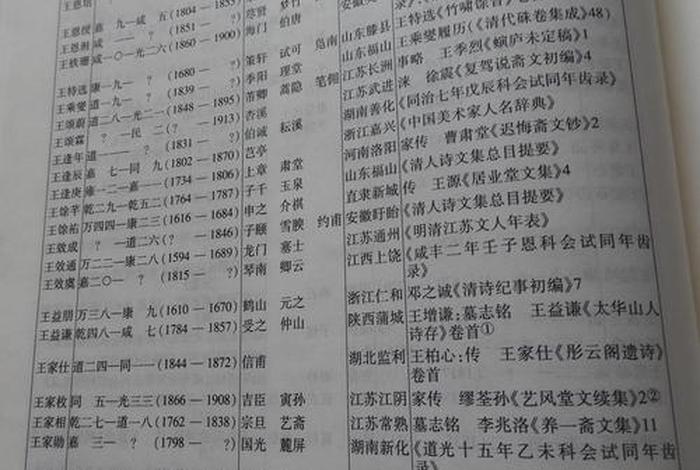 王恩绶 嘉 九—咸 五(1804 — 1855)
王恩湘 咸 — ? (1851 — ?) 海门 伯唐 山东滕县 王特选《竹啸馀音》
王㛃珊 咸一〇—光二六(1860 — 1900) 山东福山 王乘燮履历(《清代硃卷集成》48)
王特选 康一九— ? (1680 — ?) 策轩 试可 凫南 江苏长洲 事略 王季烈《螾庐未定稿》1
王乘燮 道一九— ? (1839 — ?) 季阳 理堂 江苏武进 涞 徐震《复驾说斋文初编》4
王颂蔚 道二八—光二一(1848 — 1895) 芾卿 蒿隐 笔佣 湖南善化《同治七年戊辰科会试同年齿录》
王颂霖 ? —民 二(? — 1913) 杏溪 浙江嘉兴《中国美术家人名辞典》
王逢年 道一一— ? (1831 — ?) 伯诚 耘溪 河南洛阳 家传 曹肃堂《迟悔斋文钞》2
王逢辰 嘉 七—同 九(1802 — 1870) 芑亭 山东福山《清人诗文集总目提要》
王逢庚 雍一二—嘉一一(1734 — 1806) 上章 肃堂 直隶新城 传 王源《居业堂文集》4
王馀芊 乾二九—乾五二(1764 — 1787) 子千 玉泉 安徽盱眙《清人诗文集总目提要》
王馀祐 万四四—康二三(1616 — 1684) 申之 介祺 江苏通州《明清江苏文人年表》
王效成 ? —道二六(? — 1846) 子颐 雪腴 约甫 江西上饶《咸丰二年壬子恩科会试同年齿录》
王效通 万二二—康二八(1594 — 1689) 龙门 塞士
王效虞 嘉二〇— ? (1815 — ?) 琴南 卿云
王益朋 万三八—康 九(1610 — 1670) 鹤山 元之 浙江仁和 邓之诚《清诗纪事初编》7
王益谦 乾四八—咸 七(1784 — 1857) 受之 仲山 陕西蒲城 王增谦:墓志铭 王益谦《太华山人诗存》卷首①
王家仕 道二四—同一一(1844 — 1872) 信甫 湖北监利 王柏心:传 王家仕《彤云阁遗诗》卷首
王家枚 同 五—光三三(1866 — 1908) 吉臣 寅孙 江苏江阴 家传 缪荃孙《艺风堂文续集》2②
王家相 乾二七—道一八(1762 — 1838) 宗旦 艺斋 江苏常熟 墓志铭 李兆洛《养一斋文集》11
王家勋 嘉 三— ? (1798 — ?) 国光 麓屏 湖南新化《道光十五年乙未科会试同年齿录》